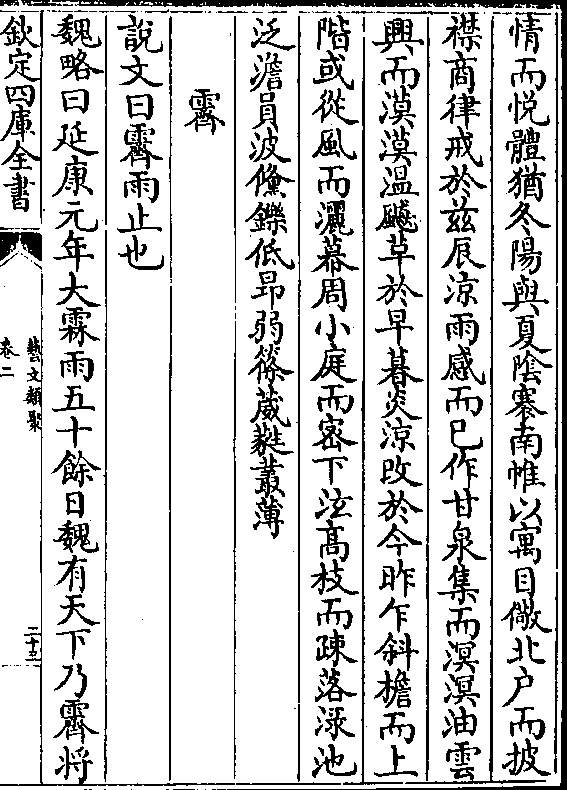 情而悦體猶冬陽與夏隂褰南帷以寓目儆北户而披
襟商律戒於兹辰涼雨感而已作甘泉集而溟溟油雲
興而漠漠温飈草於早暮炎涼改於今昨乍斜檐而上
階或從風而灑幕周小庭而密下泫髙枝而踈落渌池
泛澹員波儵鑠低昻弱篠葳蕤叢薄
霽
說文曰霽雨止也
魏略曰延康元年大霖雨五十餘日魏有天下乃霽將
欽定四庫全書
藝文類聚
卷二
二十三